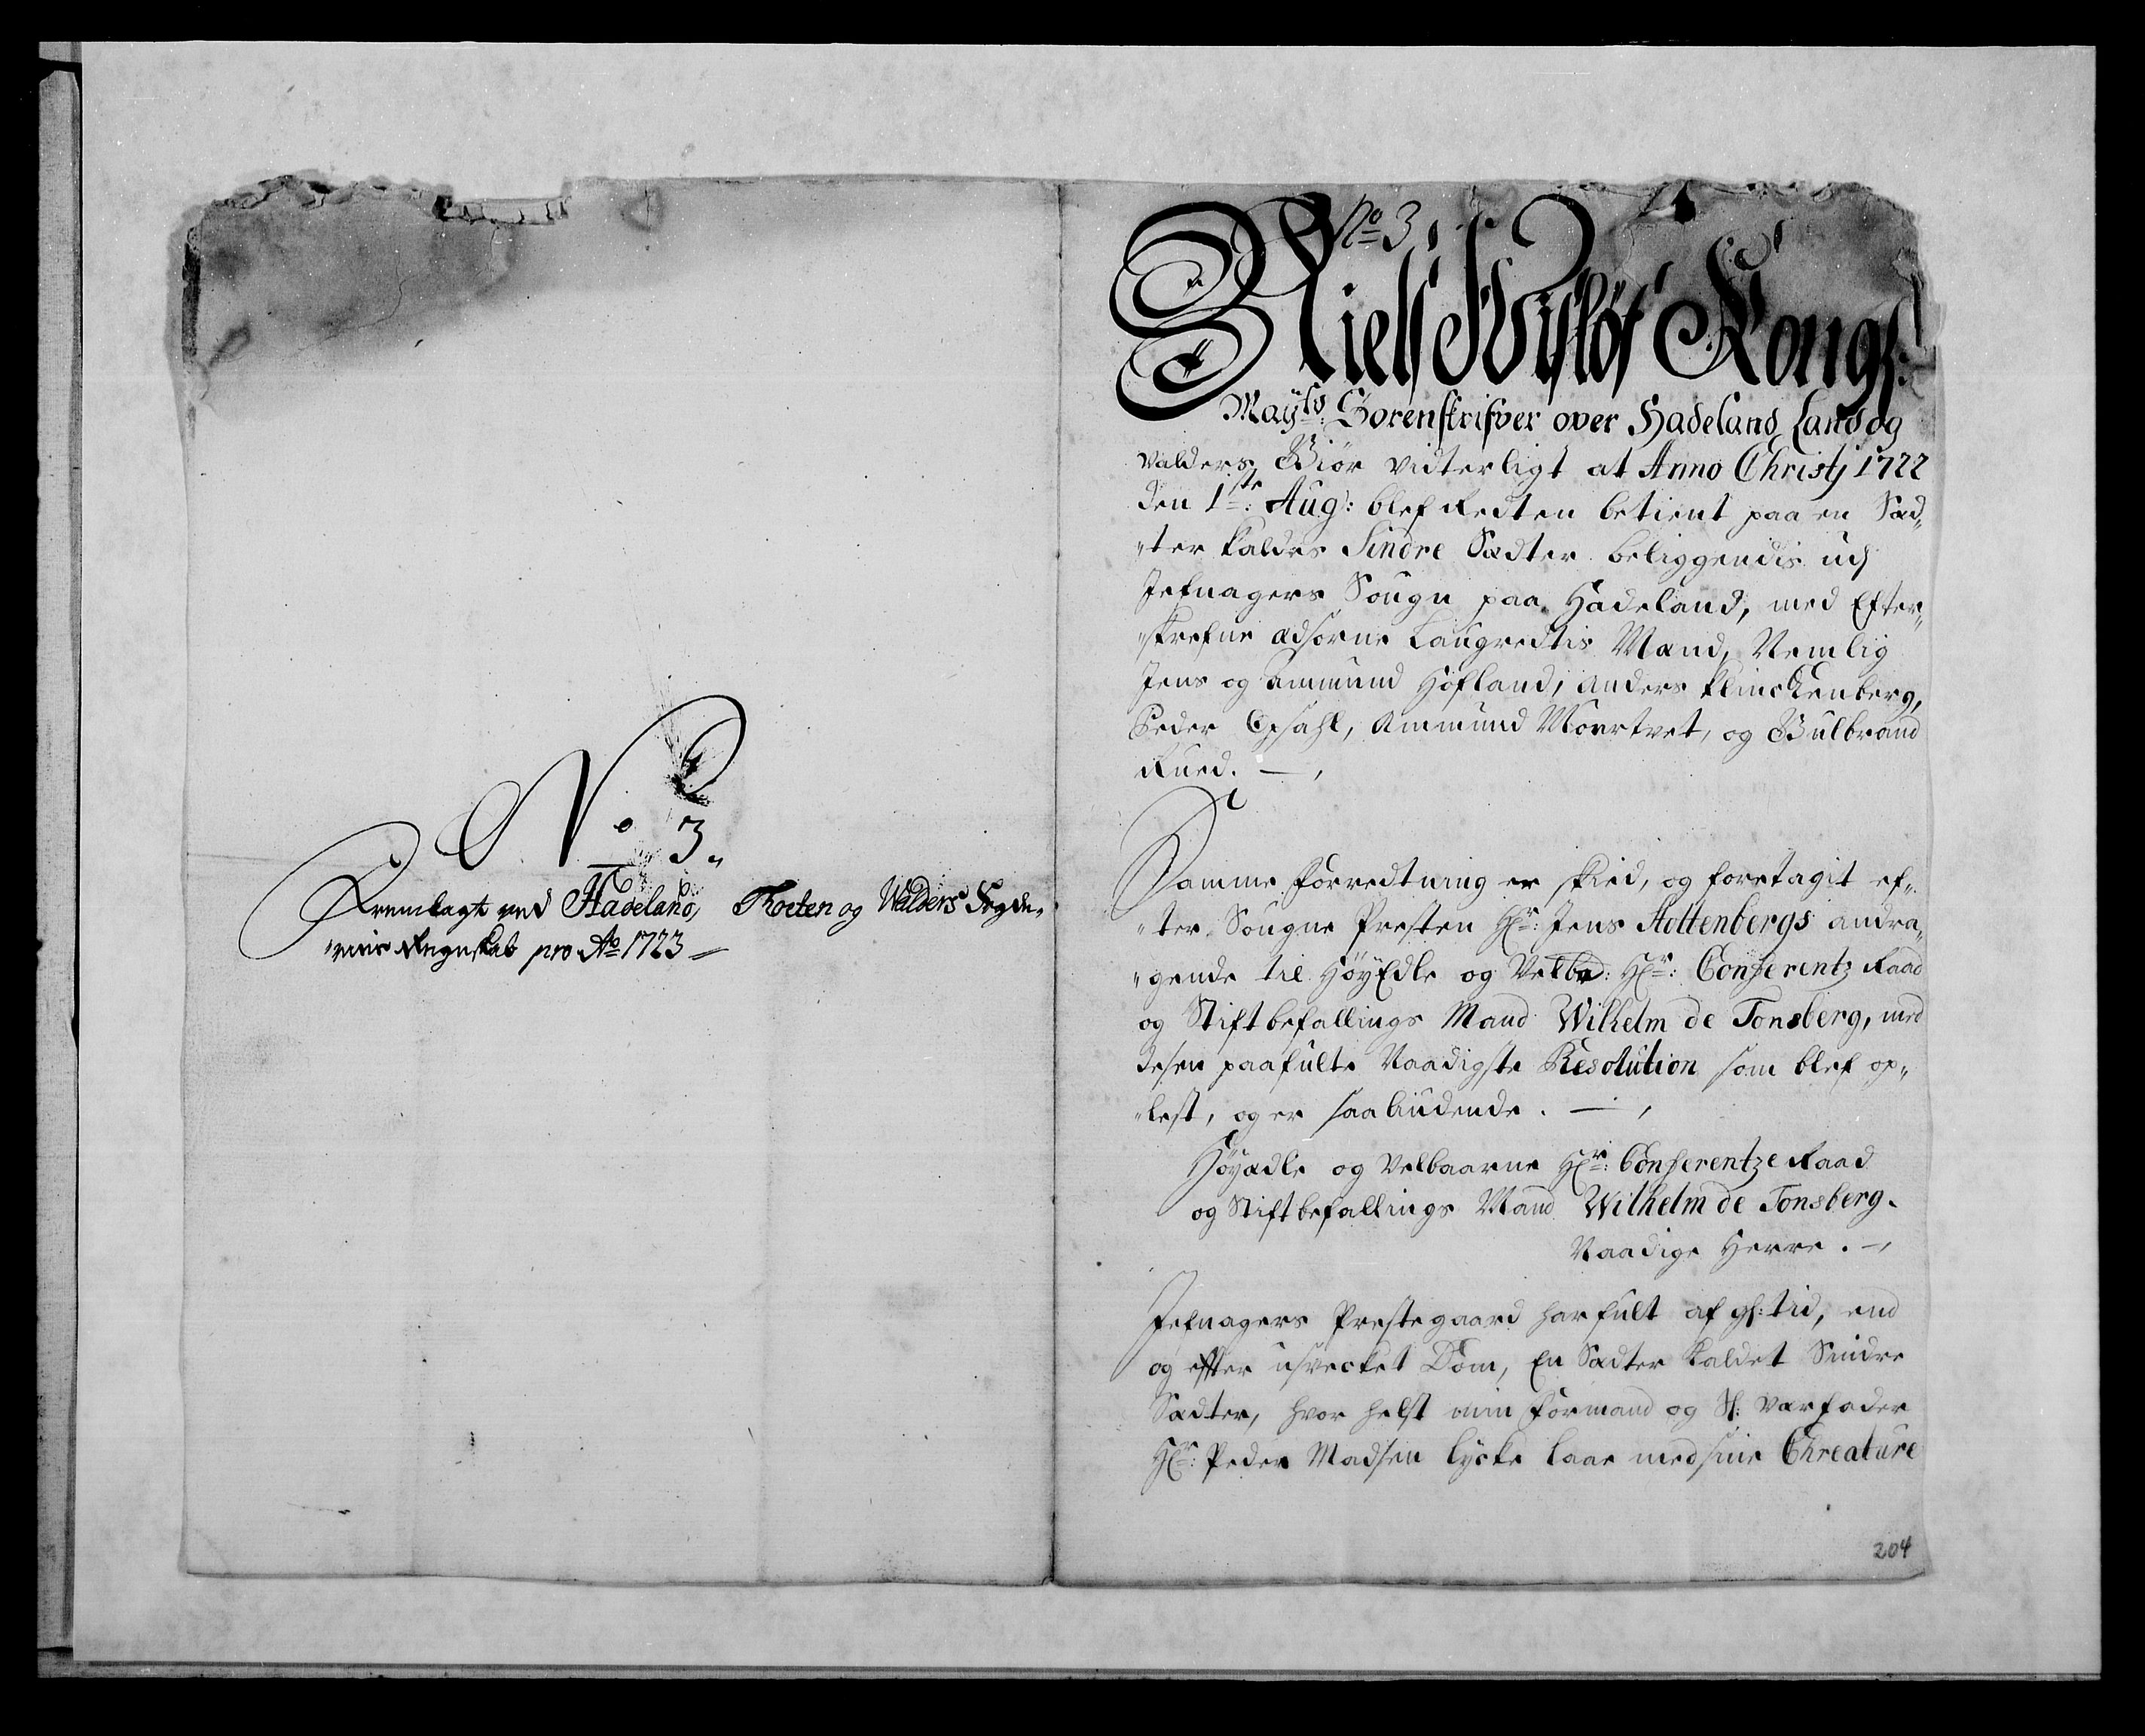 N:o 3.
Fremlagt ved Hadeland, Thoten og Walders Fogde„
„ries Regnskab pro Ao 1723
No 3
Niels Kongs:
Mayts: Sorenskrifver over Hadeland Land og
Valders, Giør vidterligt at Anno Christj 1722
den 1ste: Aug: blef Retten betient paa en Sæd„
„ter kaldes Sindre Sædter beliggendis udj
Jefnagers Sougn paa Hadeland, med Efter„
„skrefne Edsorne Laugredtis Mænd, Nemlig
Jens og Ammund Hofland, Anders Klinckenberg,
Peder Opsahl, Ammund Moertvet, og Gulbrand
Rued.
Samme Forredtning er skied, og foretagit ef„
„ter Sougne Presten Hr: Jens Stottenbergs andra„
„gende til HøyEdle og Velb: Hr: Conferentz Raad
og Stiftbefallings Mand Wilhelm de Tonsberg, med
desen paafulte Naadigste Resolution som blef op„
„lest, og er saaliudende.
Høyædle og Velbaarne Hr: Conferentze Raad
og Stiftbefallings Mand Wilhelm de Tonsberg.
Naadige Herre.
Jefnagers Prestegaard har fult af gl: tid, end
og efter usvecket Dom, En Sædter kaldet Sindre
Sædter, hvor helst min Formand og Sl: Værfader
Hr: Peder Madsen lycke laae med sine Chreature
204